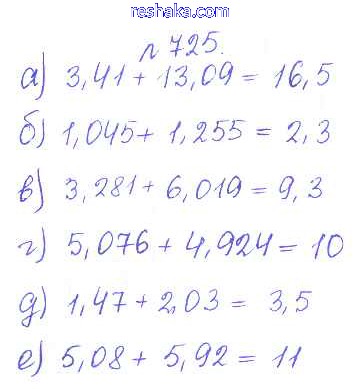 reshaka.com
№ 725.
а) 3,41 + 13,09 = 16,5
б) 1,045 + 1,255 = 2,3
в) 3,281 + 6,019 = 9,3
г) 5,076 + 4,924 = 10
д) 1,47 + 2,03 = 3,5
е) 5,08 + 5,92 = 11